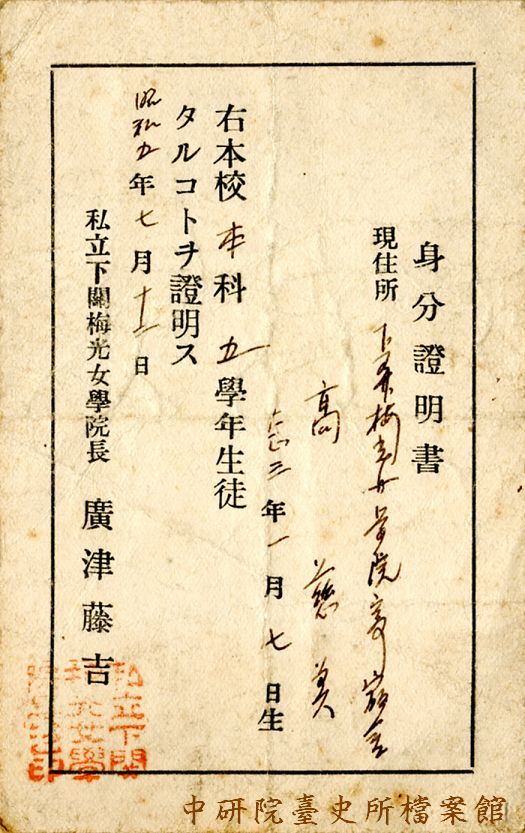 身分證明書
現住所 下關梅光女學院寄宿舍
高 慈美
大正三年一月七日生
右本校本科五學年生徒
タルコトヲ證明ス
昭和五年七月十二日
私立下關梅光女學院長 廣津藤吉
中研院臺史所檔案館